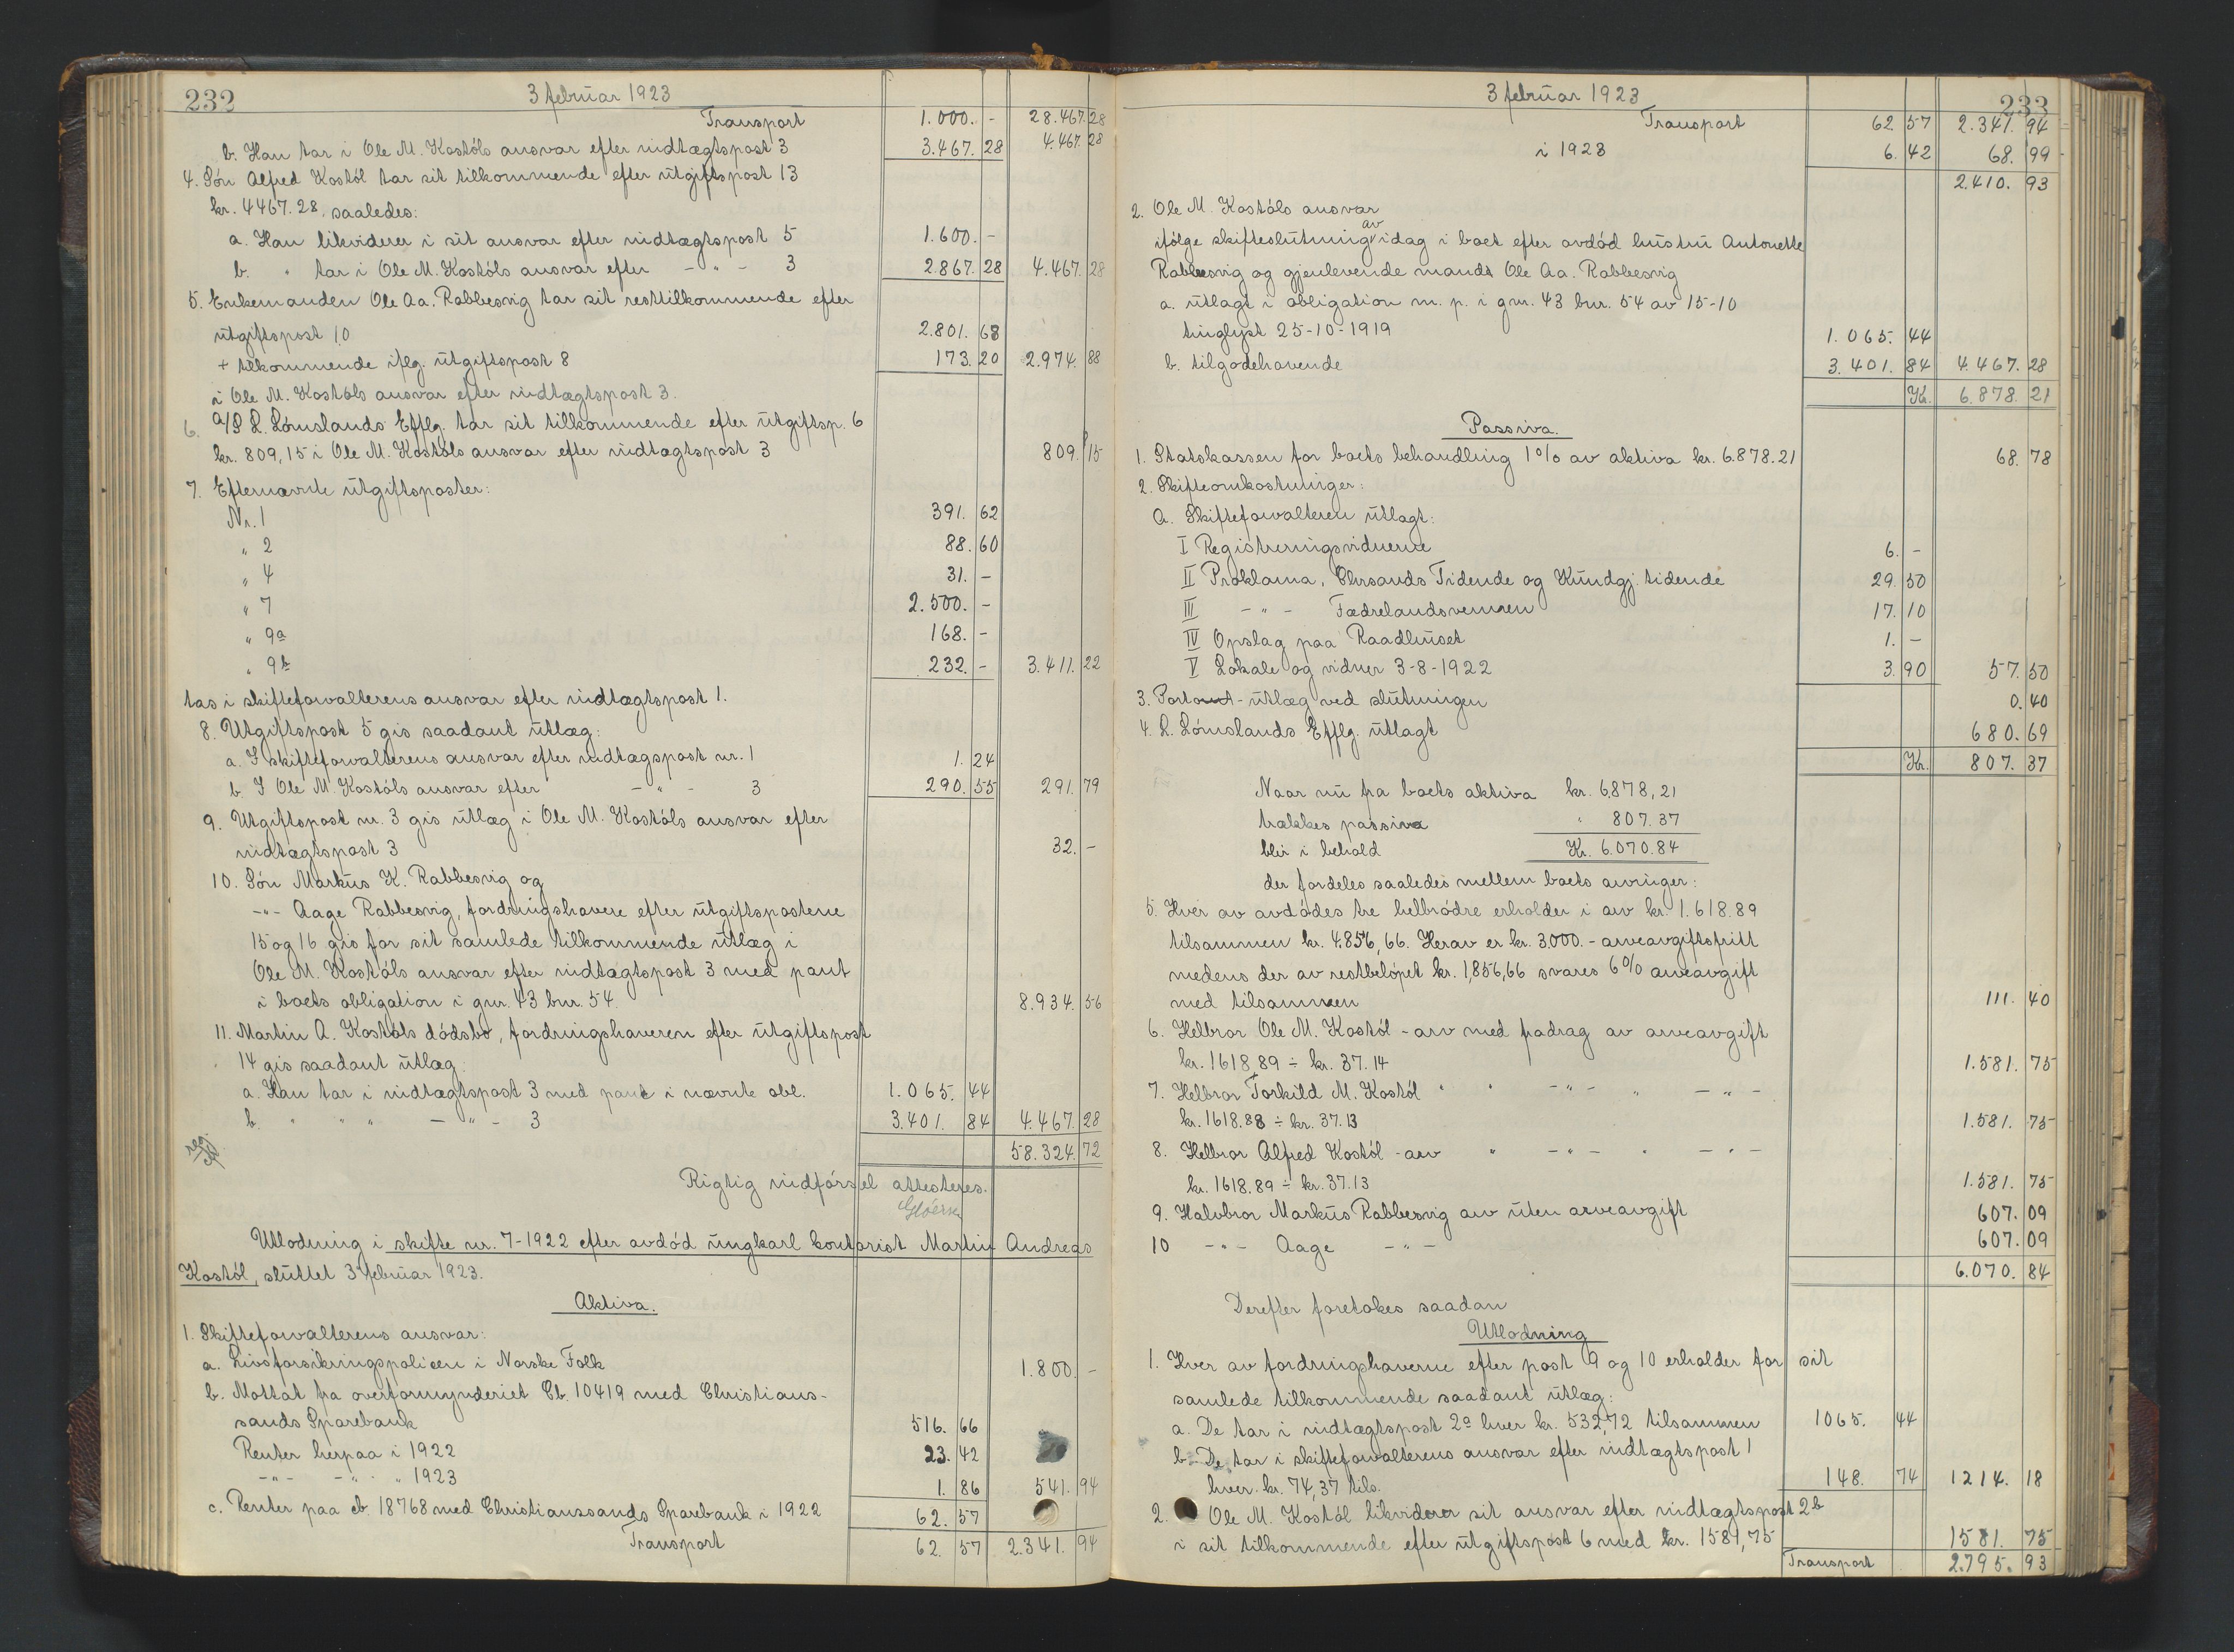 232
3 februar 1923
Transport 1.000. - 28.467. 28
b. Han tar i Ole M. Kostöls ansvar efter indtægtspost 3 3.467. 28 4.467. 28
4. Sön Alfred Kostöl tar sit tilkommende efter utgiftspost 13
kr. 4467.28. saaledes:
a. Han likviderer i sit ansvar efter indtægtspost 5 1.600. -
b. " tar i Ole M. Kostöls ansvar efter - " - 3 2.867. 28 4.467. 28
5. Enkemanden Ole Aa. Rabbesvig tar sit resttilkommende efter
utgiftspost 10 2.801. 68
+ tilkommende iflg. utgiftspost 8 173. 20 2.974. 88
i Ole M. Kostöls ansvar efter indtægtspost 3.
6. A/S L. Lömslands Efflg. tar sit tilkommende efter utgiftsp. 6
kr. 809,15 i Ole M. Kostöls ansvar efter indtægtspost 3 809. 15
7. Efternævnte utgiftsposter:
Nr. 1 391. 62
" 2 88. 60
" 4 31. -
" 7 2.500. -
" 9a 168. -
" 9b 232. - 3.411. 22
tas i skifteforvalterens ansvar efter indtægtspost 1.
8. Utgiftspost 5 gis saadant utlæg:
a. I skifteforvalterens ansvar efter indtægspost nr. 1 1. 24
b. I Ole M. Kostöls ansvar efter - " - 3 290. 55 291. 79
9. Utgiftspost nr. 3 gis utlæg i Ole M. Kostöls ansvar efter
indtægtspost 3 32. -
10. Sön Markus K. Rabbesvig og
-"- Aage Rabbesvig, fordringshavere efter utgiftspostene
15 og 16 gis for sit samlede tilkommende utlæg i
Ole M. Kostöls ansvar efter indtægtspost 3 med pant
i boets obligation i gnr. 43 bnr. 54. 8.934. 56
11. Martin A. Kostöls dödsbo, fordringshaveren efter utgiftspost
14 gis saadant utlæg:
a. Han tar i indtægtspost 3 med pant i nævnte obl. 1.065. 44
b. " " " - " - 3 3.401. 84 4.467. 28
58.324. 72
Rigtig indförsel attesteres.
Utlodning i skifte nr. 7-1922 efter avdöd ungkarl kontorist Martin Andreas
Kostöl, sluttet 3 februar 1923.
Aktiva.
1. Skifteforvalterens ansvar:
a. Livsforsikringspolicen i Norske Folk 1.800. -
b. Mottat fra overformynderiet Cb. 10419 med Christians-
sands Sparebank 516. 66
Renter herpaa i 1922 23. 42
-"- -"- " 1923 1. 86 541. 94
c. Renter paa cb. 18768 med Christianssands Sparebank i 1922 62. 57
Transport 62. 57 2.341. 94
3 februar 1923
233
Transport 62. 57 2.341. 94
i 1923 6. 42 68. 99
2.410. 93
2. Ole M. Kostöls ansvar
av
ifölge skifteslutning idag i boet efter avdöd hustru Antonette
Rabbesvig og gjenlevende mands Ole Aa. Rabbesvig
a. utlagt i obligation m. p. i gnr. 43 bnr. 54 av 15-10
tinglyst 25-10-1919 1.065. 44
b. tilgodehavende 3.401. 84 4.467. 28
Kr. 6.878. 21
Passiva.
1. Statskassen for boets behandling 1% av aktiva kr. 6.878.21 68. 78
2. Skifteomkostninger:
A. Skifteforvalteren utlagt:
I Registreringsvidnerne 6. -
II Proklama, Chrsands Tidende og Kundgj. tidende 29. 50
III - " - Fædrelandsvennen 17. 10
IV Opslag paa Raadhuset 1. -
V Lokale og vidner 3-8-1922 3. 90 57. 50
3. Porto-utlæg ved slutningen 0. 40
4. L. Lömslands Efflg. utlagt 680. 69
Kr. 807. 37
Naar nu fra boets aktiva kr. 6.878,21
trækkes passiva " 807.37
blir i behold Kr. 6.070.84
der fordeles saaledes mellem boets arvinger:
5. Hver av avdödes tre helbrödre erholder i arv kr. 1.618.89
tilsammen kr. 4.856,66. Herav er kr. 3.000.- arveavgiftsfritt
medens der av restbelöpet kr. 1,856,66 svares 6% arveavgift
med tilsammen 111. 40
6. Helbror Ole M. Kostöl - arv med fradrag av arveavgift
kr. 1618.89 ÷ kr. 37.14 1.581. 75
7. Helbror Torkild M. Kostöl " " - " - " - " -
kr. 1618.88 ÷ kr. 37.13 1.581. 75
8. Helbror Alfred Kostöl - arv " - " - " - " -
kr. 1618.89 ÷ kr. 37.13 1.581. 75
9. Halvbror Markus Rabbesvig arv uten arveavgift 607. 09
10 -"- Aage -"- 607. 09
6.070. 84
Derefter foretokes saadan
Utlodning
1. Hver av fordringshaverne efter post 9 og 10 erholder for sit
samlede tilkommende saadant utlæg:
a. De tar i indtægtspost 2a hver kr. 532,72 tilsammen 1065. 44
b. De tar i skifteforvalterens ansvar efter indtægtspost 1
hver kr. 74,37 tils. 148. 74 1214. 18
2. Ole M. Kostöl likviderer sit ansvar efter indtægtspost 2b
i sit tilkommende efter utgiftspost 6 med kr. 1581,75 1581. 75
Transport 2.795. 93